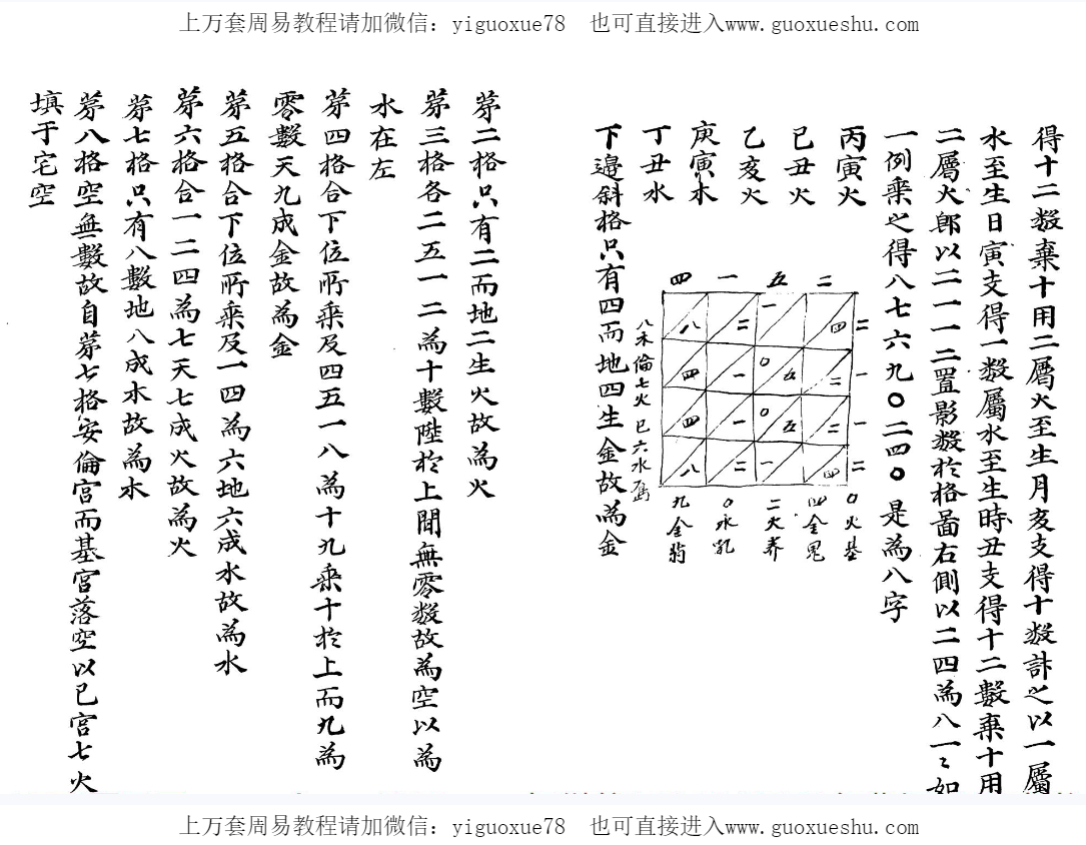 上万套周易教程请加微信：yiguoxue78　也可直接进入www.guoxueshu.com
得十二数棄十用二屬火至生月亥支得十数計之以一屬
水至生日寅支得一数屬水至生時丑支得十二數棄十用
二屬火郎以二一一二置影数於格畐右側以二四為八一〻如
一例乘之得八七六九〇二四〇是為八字
丙寅火
己丑火
乙亥火
庚寅木
丁丑水
四 一 五 二
八 二 一 四 二
四 一 〇 五 二 一
四 一 〇 五 二 一
八 二 一 四 二
八木倫七火巳六水
〇火基
四金鬼
二火养
〇水乳
九金翁
下邉斜格只有四而地四生金故為金
苐二格只有二而地二生火故為火
苐三格各二五一二為十數陞於上間無零数故為空以為
水在左
苐四格合下位所乘及四五一八為十九乘十於上而九為
零數天九成金故為金
苐五格合下位所乘及一四為六地六成水故為水
苐六格合一二四為七天七成火故為火
苐七格只有八數地八成木故為木
苐八格空無數故自苐七格安倫宮而基宮落空以巳宮七火
填于宅空
上万套周易教程请加微信：yiguoxue78　也可直接进入www.guoxueshu.com